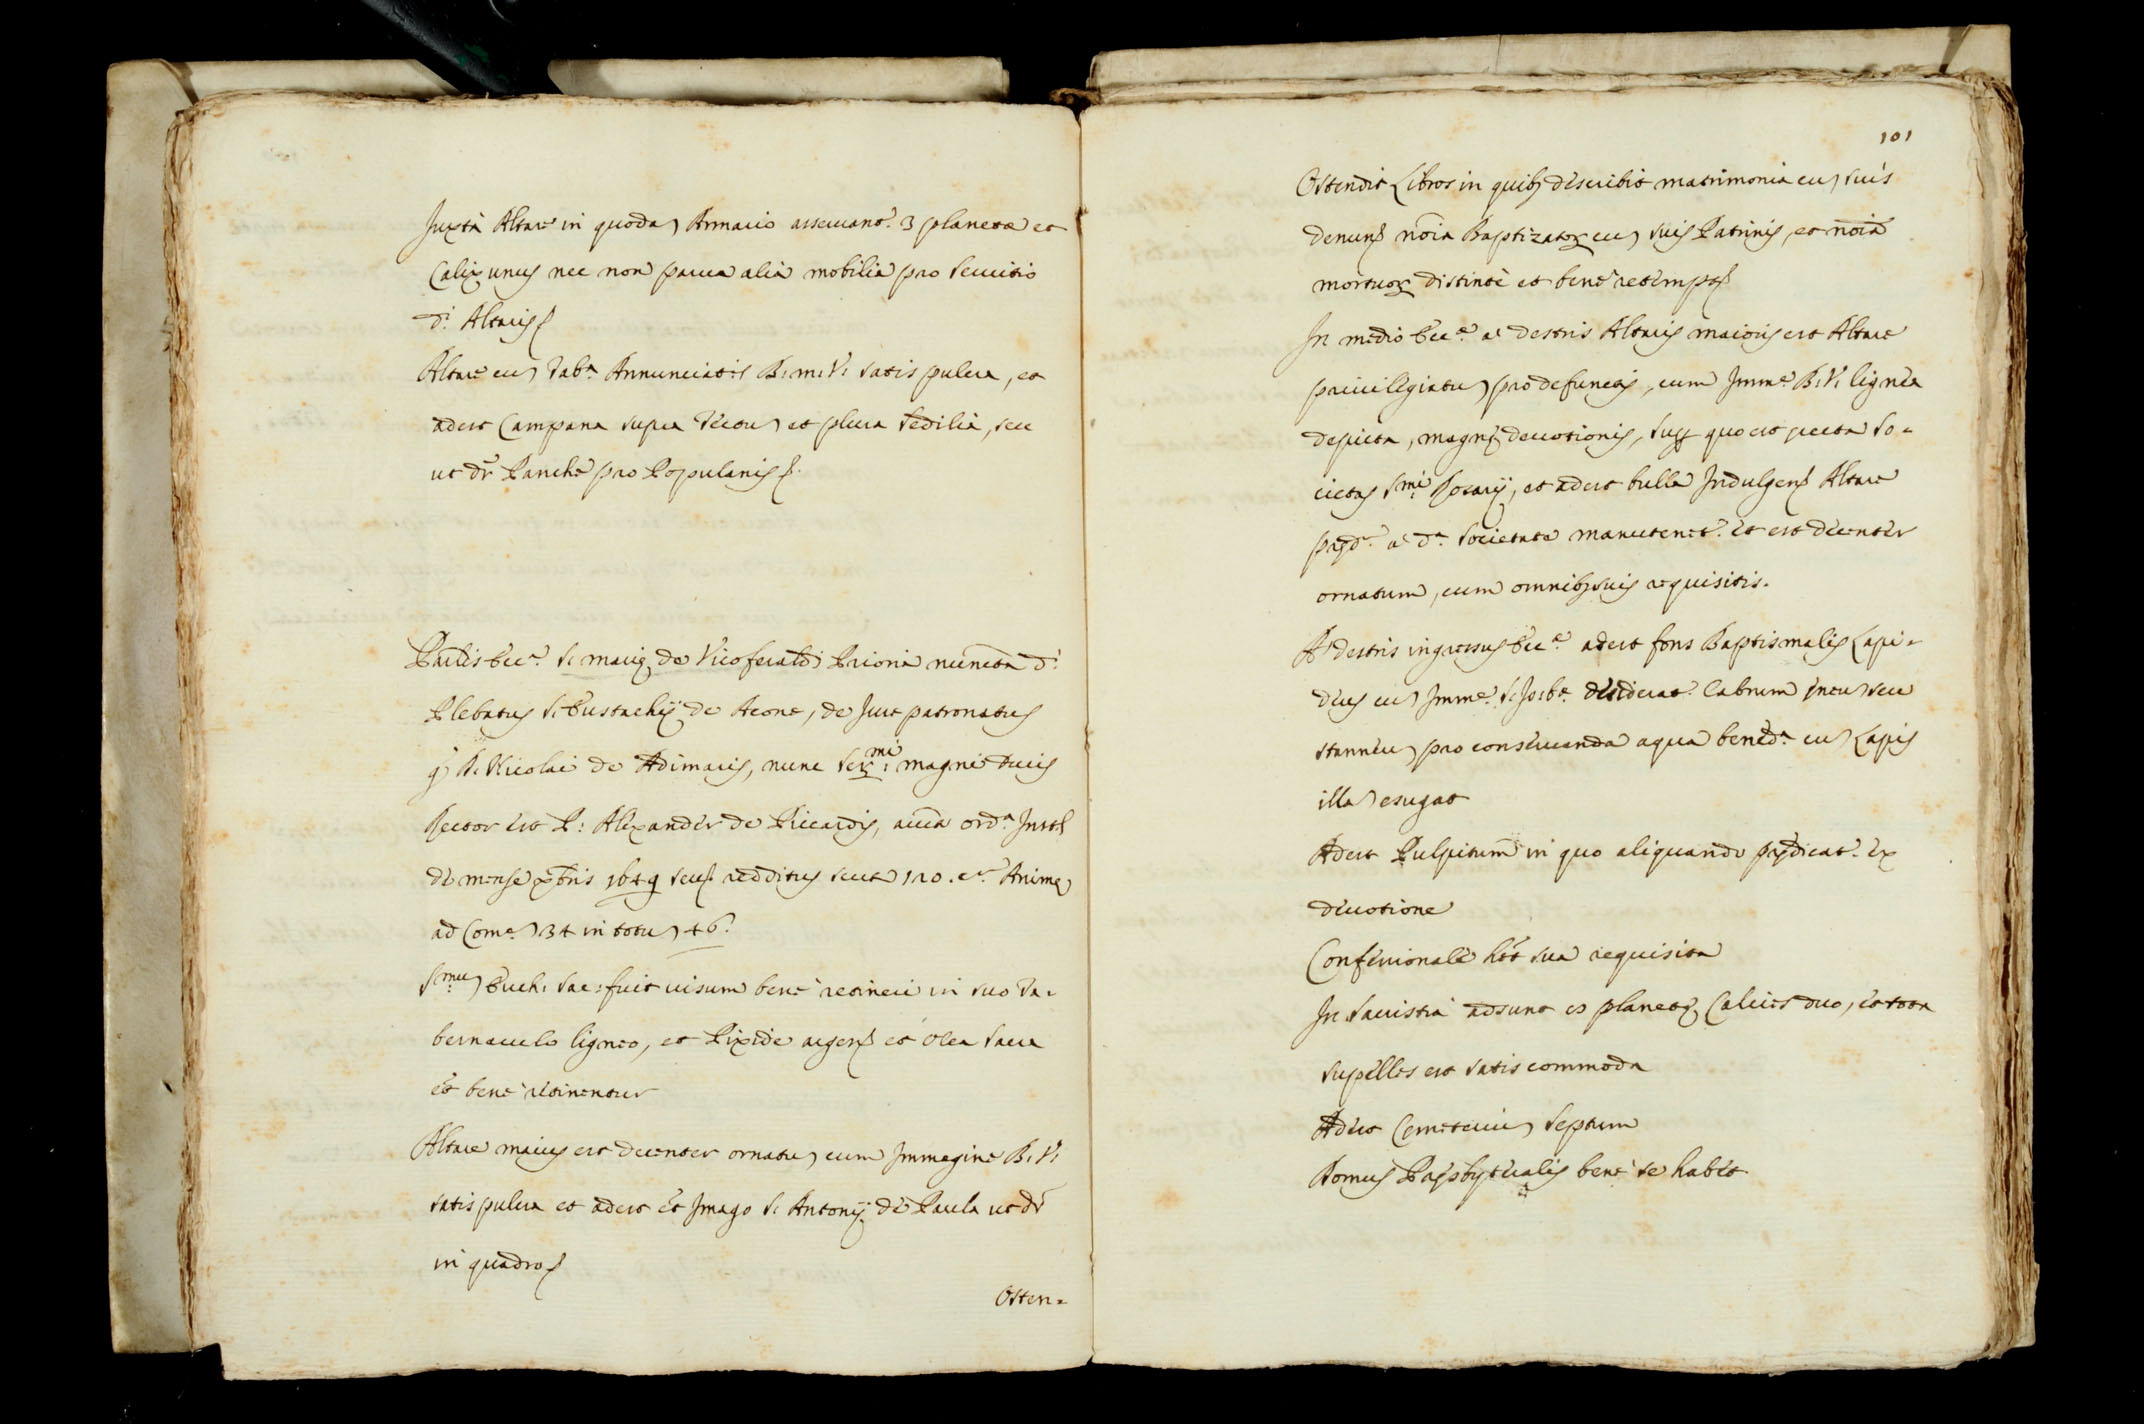 Juxtà Altare in quoda) Armario asseruant.r 3 planetæ et
Calix unus nec non pauca alia mobilia pro seruitio
d.i Altaris
Altare cu) Tab.a Annunciat.s B: m: V: satis pulcra, et
adest Campana supra Tectu) et plura sedilia, seu
ut dr Panche pro Popularis
Parlis Ecc.a S. mariæ de Vicoferaldi Prioria nuncta d.i
Plebatus S. Eustachij de Acone, de Jure patronatus
q R. Nicolai de Adimaris, nunc Ser.mi magni Ducis
Rector est P: Alexander de Riccardis, auctã ord.a Instã
de mense xbris 1649 seuẽ redditus scut. 120. c.a Anime
ad Com.e) 34 in totu) 46.
S.mu) Euch: Sac: fuit uisum bene retineri in suo Ta-
bernaculo ligneo, et Pixide argen. et Olea Sacra
et bene retinentur
Altare maius est decenter ornatu) cum Immagine B. V:
satis pulcra et adest et Imago S. Antonij de Paula ut dr
in quadro
Osten-
101
Ostendit Libros in quibq describit matrimonia cu) suis
denunt noia Baptizatorum cu) suis Patrinis, et noia
mortuorum distintè et bene
In medio Ecc.e a destris Altaris maioris est Altare
priuilegiatu) pro defunctis, cum Imm.e B. V. lignea
depicta, magne deuotionis, sup quo est erecta so-
cietas S.mi Rosarij, et adest bulla Indulgen. Altare
pred.m a d.a societate manutenet.r et est decenter
ornatum, cum omnibq suis requisitis.
A destris ingressus Ecc.e adest fons Baptismalis Lapi-
deus cu) Imm.e S. Jo: b.e desiderat.r labrum eneu) seu
stanneu) pro conseruanda aqua bened.a cu) Lapis
illa) esugat
Adest Pulpitum in quo aliquando predicat.r ex
deuotione
Confessionale het sua requisita
In Sacristia adsunt planete, Calices duo, et tota
supelles est satis commoda
Adest Cemeteriu) septum
Domus Presbyteralis bene se habet